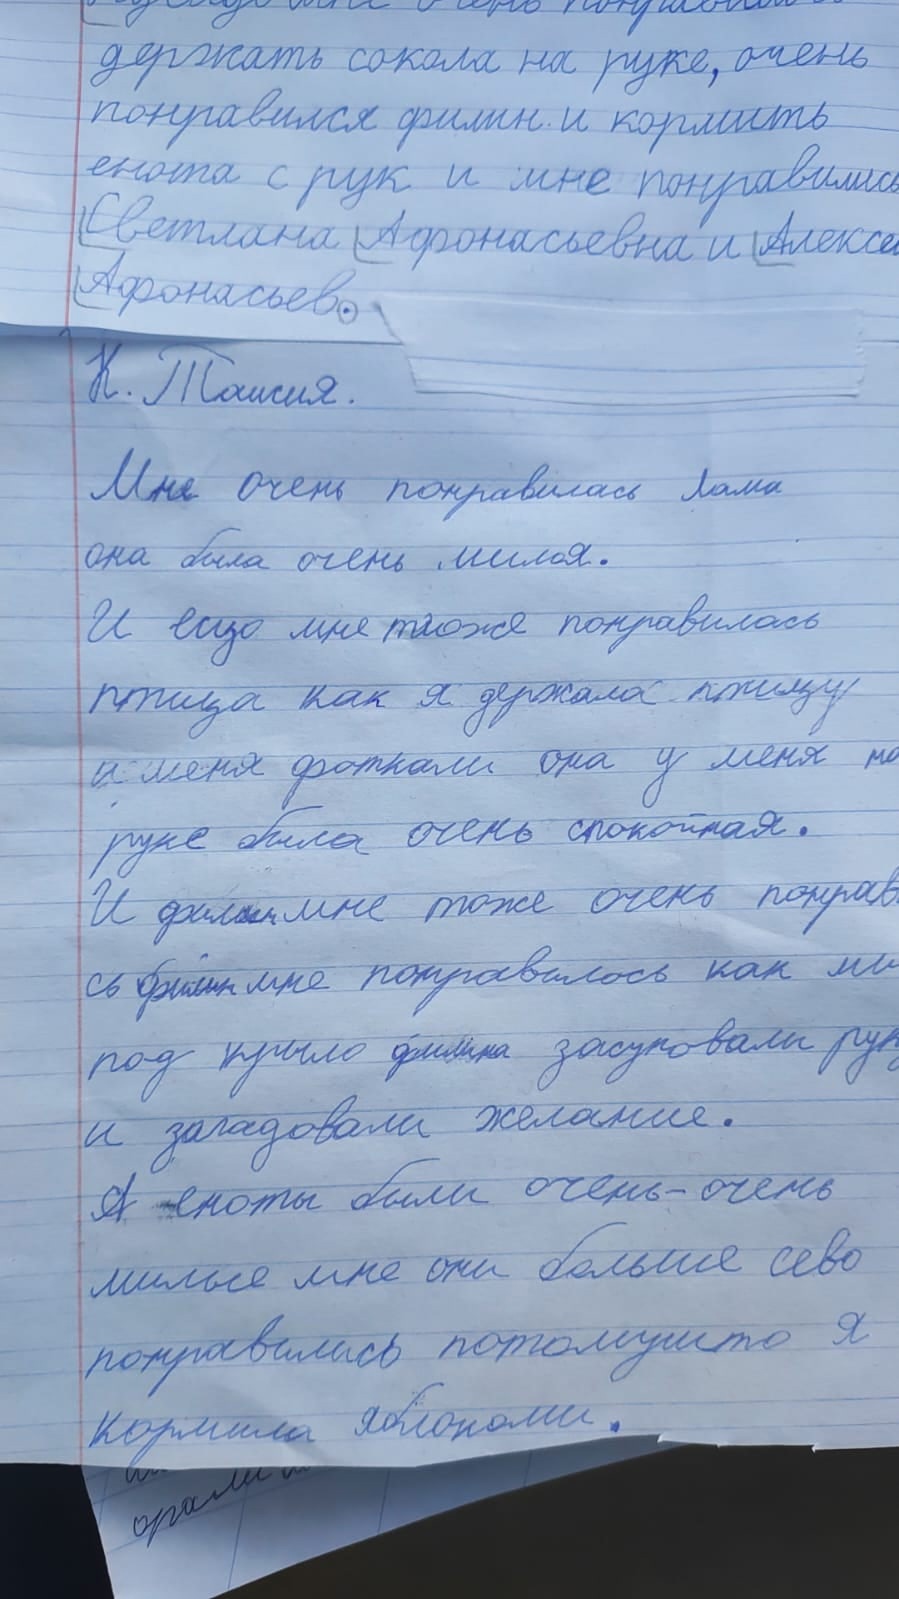 мне очень понравилось
держать сокола на руке, очень
понравился филин и кормить
енота с рук и мне понравились
Светлана Афонасьевна и Алексей
Афонасьев.
К. Таисия.
Мне очень понравилась лама
она была очень милая.
И ещо мне тоже понравилась
птица как я держала птицу
и меня фоткали она у меня на
руке была очень спокойная.
И филин мне тоже очень понрав
сь филин мне понравилось как мы
под крыло филина засуповали руку
и загадовали желание.
А еноты были очень-очень
милые мне они больше сево
понравились потомушто я
кормила яблоками.